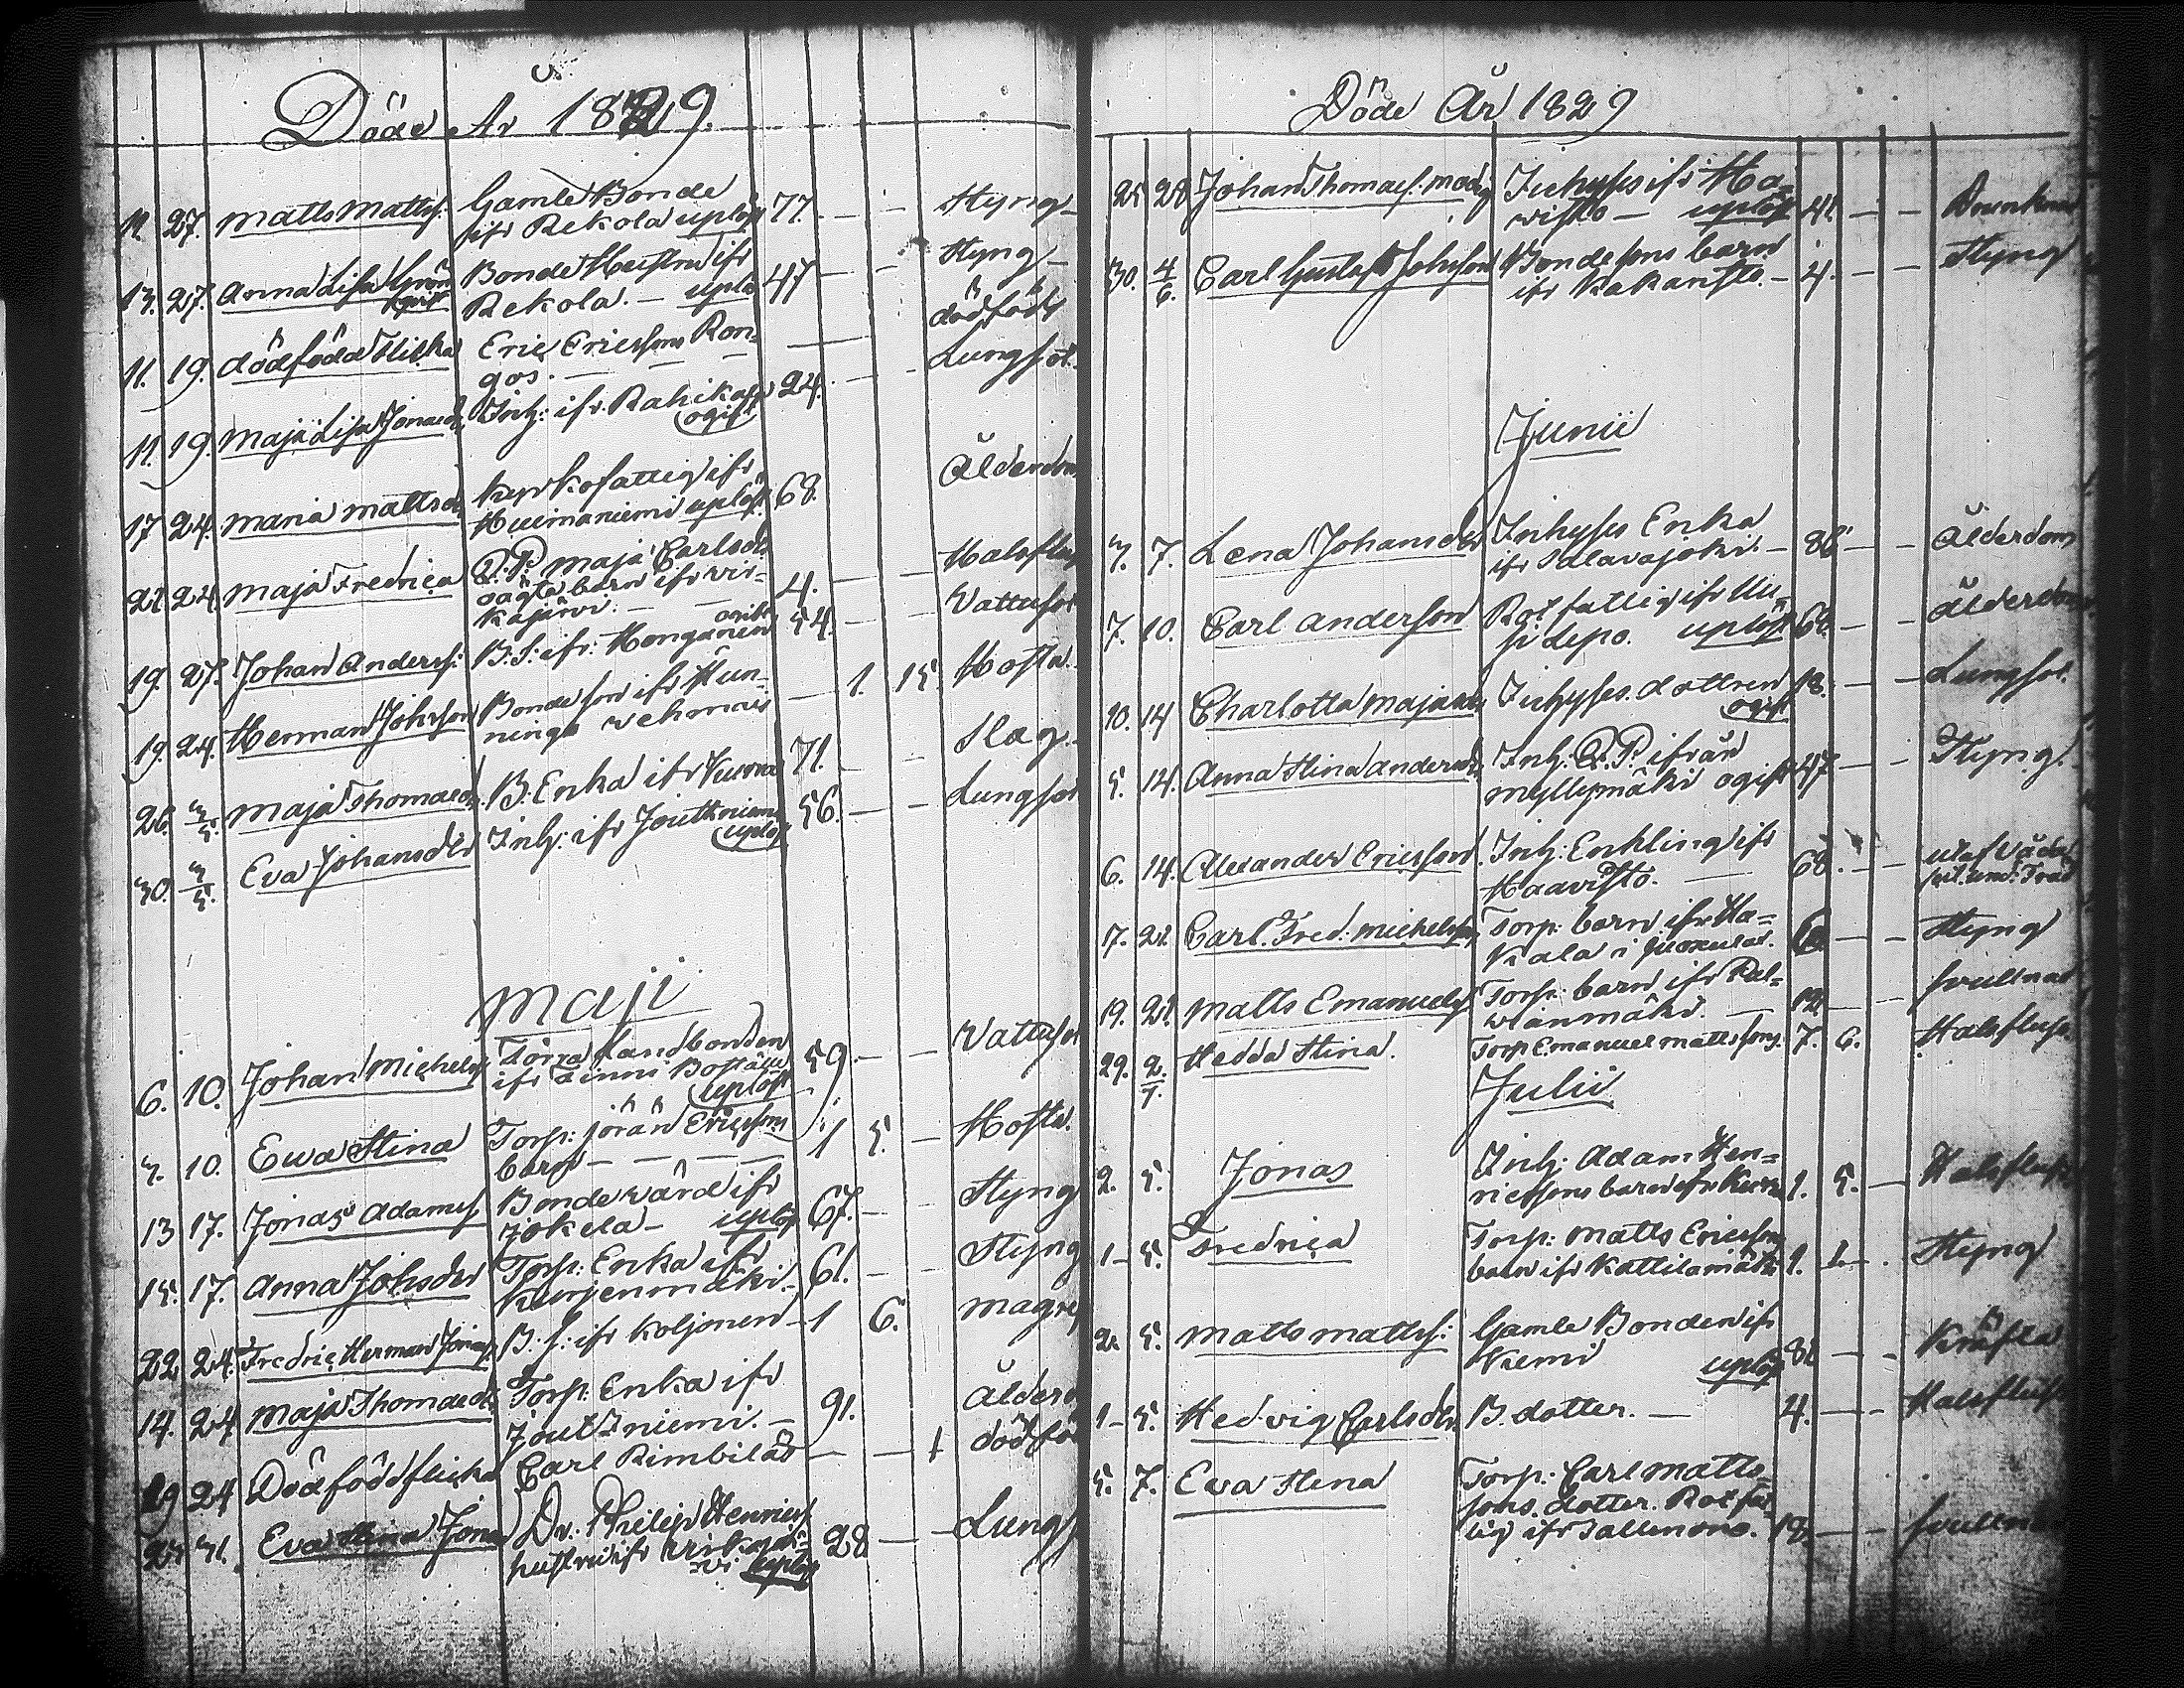 Döde År 1829.
11. 27. Matts Mattss: Gamle Bonde
ifr Rekola uplöst 77. — — Styng
13. 27. Anna Lisa Bonde Hustru ifr
Rekola. — uplö 47 — — Styng
11. 19. dödfödd flicka Eric Ericssons Ron-
gos. — — — dödfödt
11. 19. Maja Lisa Jonaed. Inh: ifr. Rahikal
ogift 24. — — Lungsot.
17 24. Maria Mattsd. kyrkofattig ifr
Huimaniemi uplöst 68 Ålderdom
21 24. Maja Fredrica Q. P. Maja Carlsdr
oägta barn ifr Vir-
kajärvi. — — 4. — — Halsflus
19. 27. Johan Anderss: B. S: ifr: Honganen ogift 54. — — Vattusot
19. 24. Herman Johsson Bonde son ifr Hun-
ninga Vehmais — 1. 15. Hosta.
26. 3/5. Maja Thomaed. B. Enka ifr 71. — — Slag.
30. 3/5. Eva Johansdr Inh: ifr Joutsniemi
uplös 56. — — Lungsot
Maji
6. 10. Johan Michelss Landbonden
ifr Boställe
uplöst 59. — — Vattusot
3. 10. Ewa Stina Torp: Jöran Ericssons
barn — — — — 1 5. — Hosta.
13 17. Jonas Adamss Bonde värd ifr
Jokela — uplös 67. — — Styng
15. 17. Anna Johsdr Torp: Enka ifr
Kurjenmäki. 61. — — Styng
22 24. Fredric Herman Jonass. B. S: ifr Koljonen — 1 6. magref
14. 24 Maja Thomaedr Torp: Enka ifr
Joutsniemi. — 91. Ålderd
19 24 Dödfödd flicka Carl Rimbiläs — — 1 dödfö
25 31. Eva Stina Jona Dr. Philip Henricss
hustru ifr Virkajär-
vi uplös 28 — — Lungs
Döde År 1829
25 28 Johan Thomass: Inhyses ifr Ha-
visto — uplöst 41. — — Drunknad
30. 4/6. Carl Gustaf Johsson Bondesons barn
ifr Kakansto. — 4. — — Styng
Junii
3. 7. Lena Johansdr Inhyses Enka
ifr Salavajoki. — 86 — — Ålderdom
7. 10. Carl Anderson Rotfattig ifr Uu-
si Lepo. uplöst 68. — — Ålderdom
10. 14 Charlotta Majasdr Inhyses. dottren
ogift 18. — — Lungsot.
5. 14. Anna Stina Andersdr. Inh: Q. P. ifrån
Myllymäki ogift 47 — — Styng.
6. 14. Alexander Ericsson. Inh: Enkling ifr
Haavisto. — 68. — —
7. 21 Carl. Fred: Michelsson Torp: barn ifr Ha-
kala i — — Styng
19. 21 Matts Emanuelss Torp: barn ifr Pal-
vianmäki. — 12 — — svullnad
29. 2/7. Hedda Stina. Torp Emanuel Mattssons. 7. 6. Halsflusz.
Julii
2. 5. Jonas Inh: Adam Hen-
ricssons barn ifr 1. 5. — Halsflusz
1 — 5. Fredrica Torp: Matts Ericssons
barn ifr Kattilamäki 1. 1. — Styng
2. 5. Matts Mattss: Gamle Bonden ifr
Kiemi uplös 81 — — Kräfta
1 — 5. Hedvig Carlsdr. B. dotter. — 4. — — Halsflusz
5. 7. Eva Stina Torp: Carl Matts-
sons. dotter. Rotfat-
tig ifr 18. — — svullnad